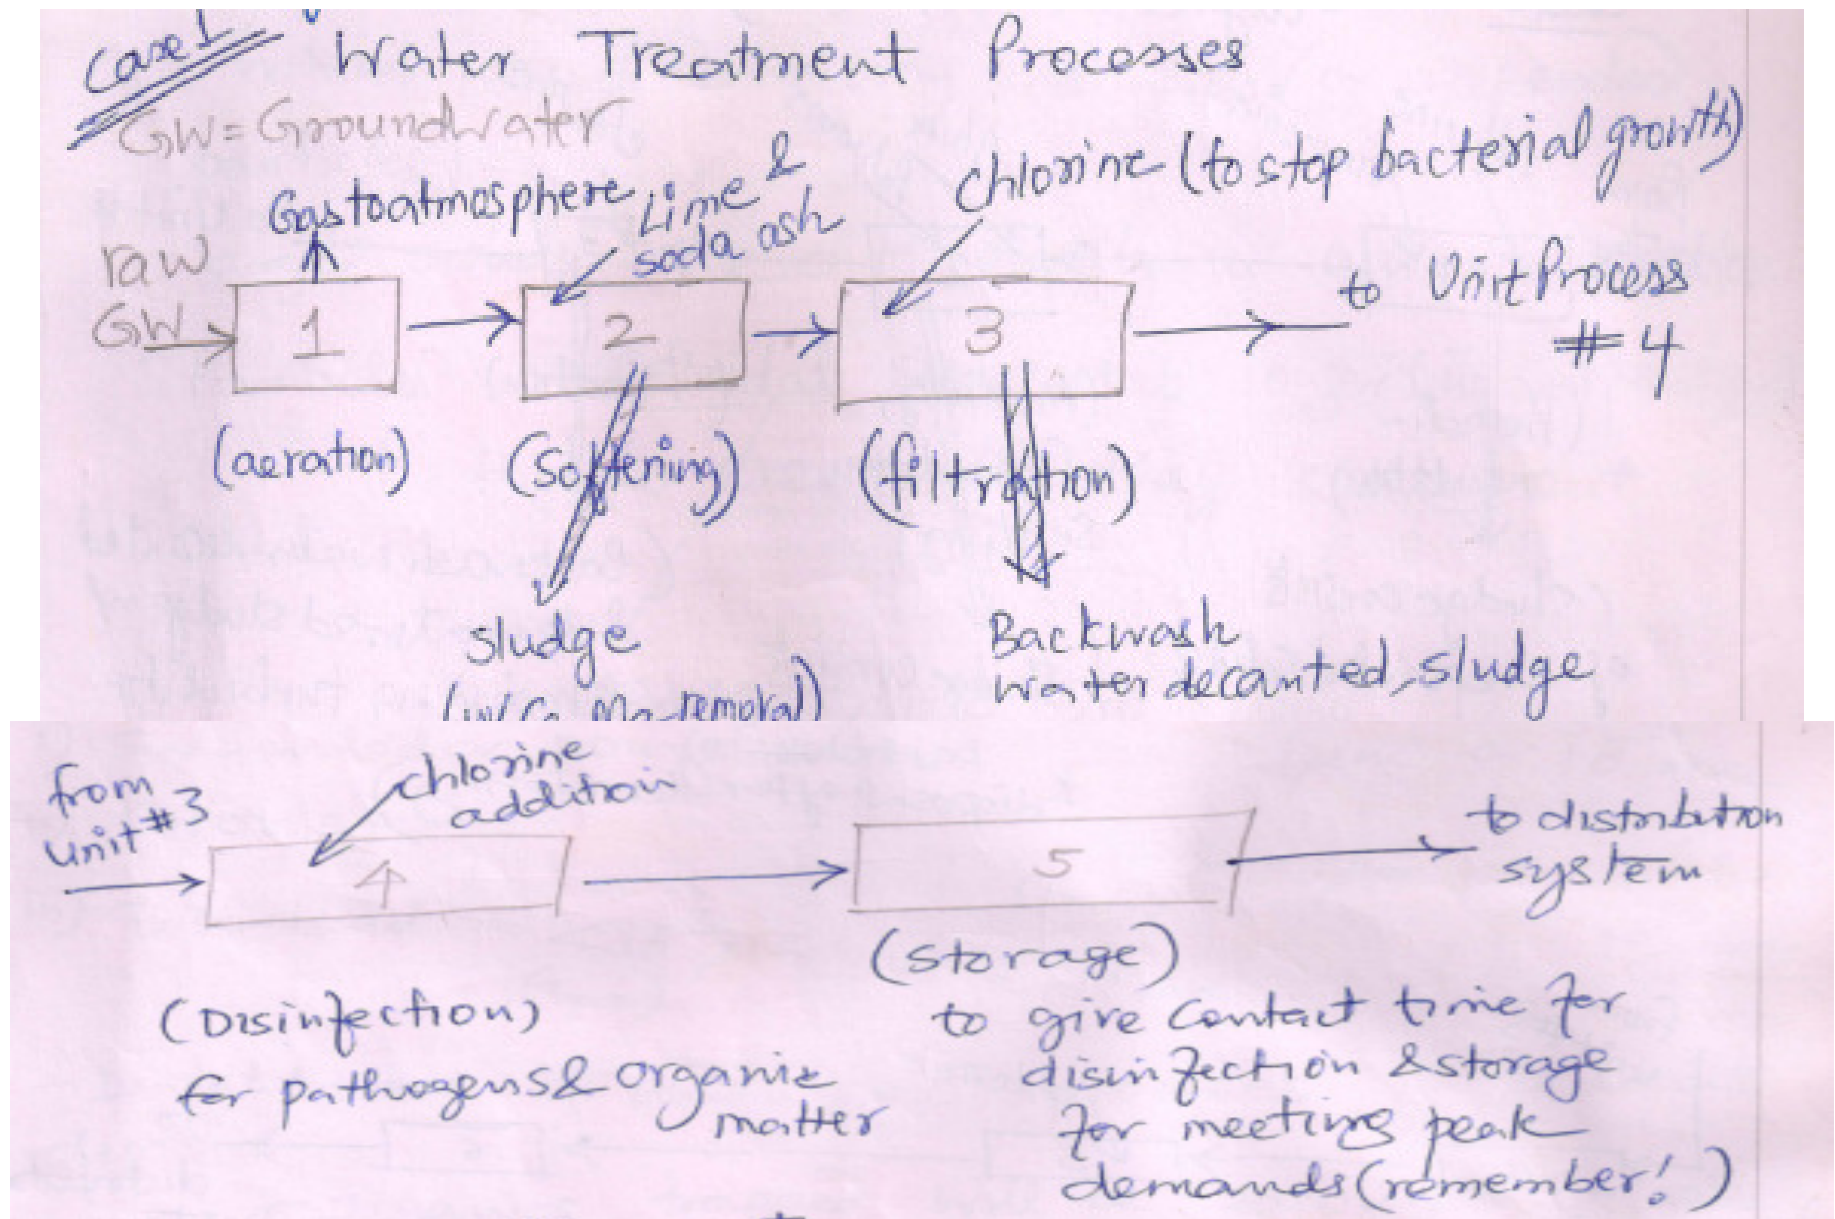 Case 1
Water Treatment Processes
GW = Groundwater
Gas to atmosphere
Lime &
soda ash
chlorine (to stop bacterial growth)
raw
GW
1
2
3
to Unit Process
#4
(aeration)
(Softening)
(filtration)
sludge
(w/ Ca, Mg removal)
Backwash
water decanted, sludge
from
unit #3
chlorine
addition
4
5
to distribution
system
(Disinfection)
for pathogens & organic
matter
(storage)
to give contact time for
disinfection & storage
for meeting peak
demands (remember!)